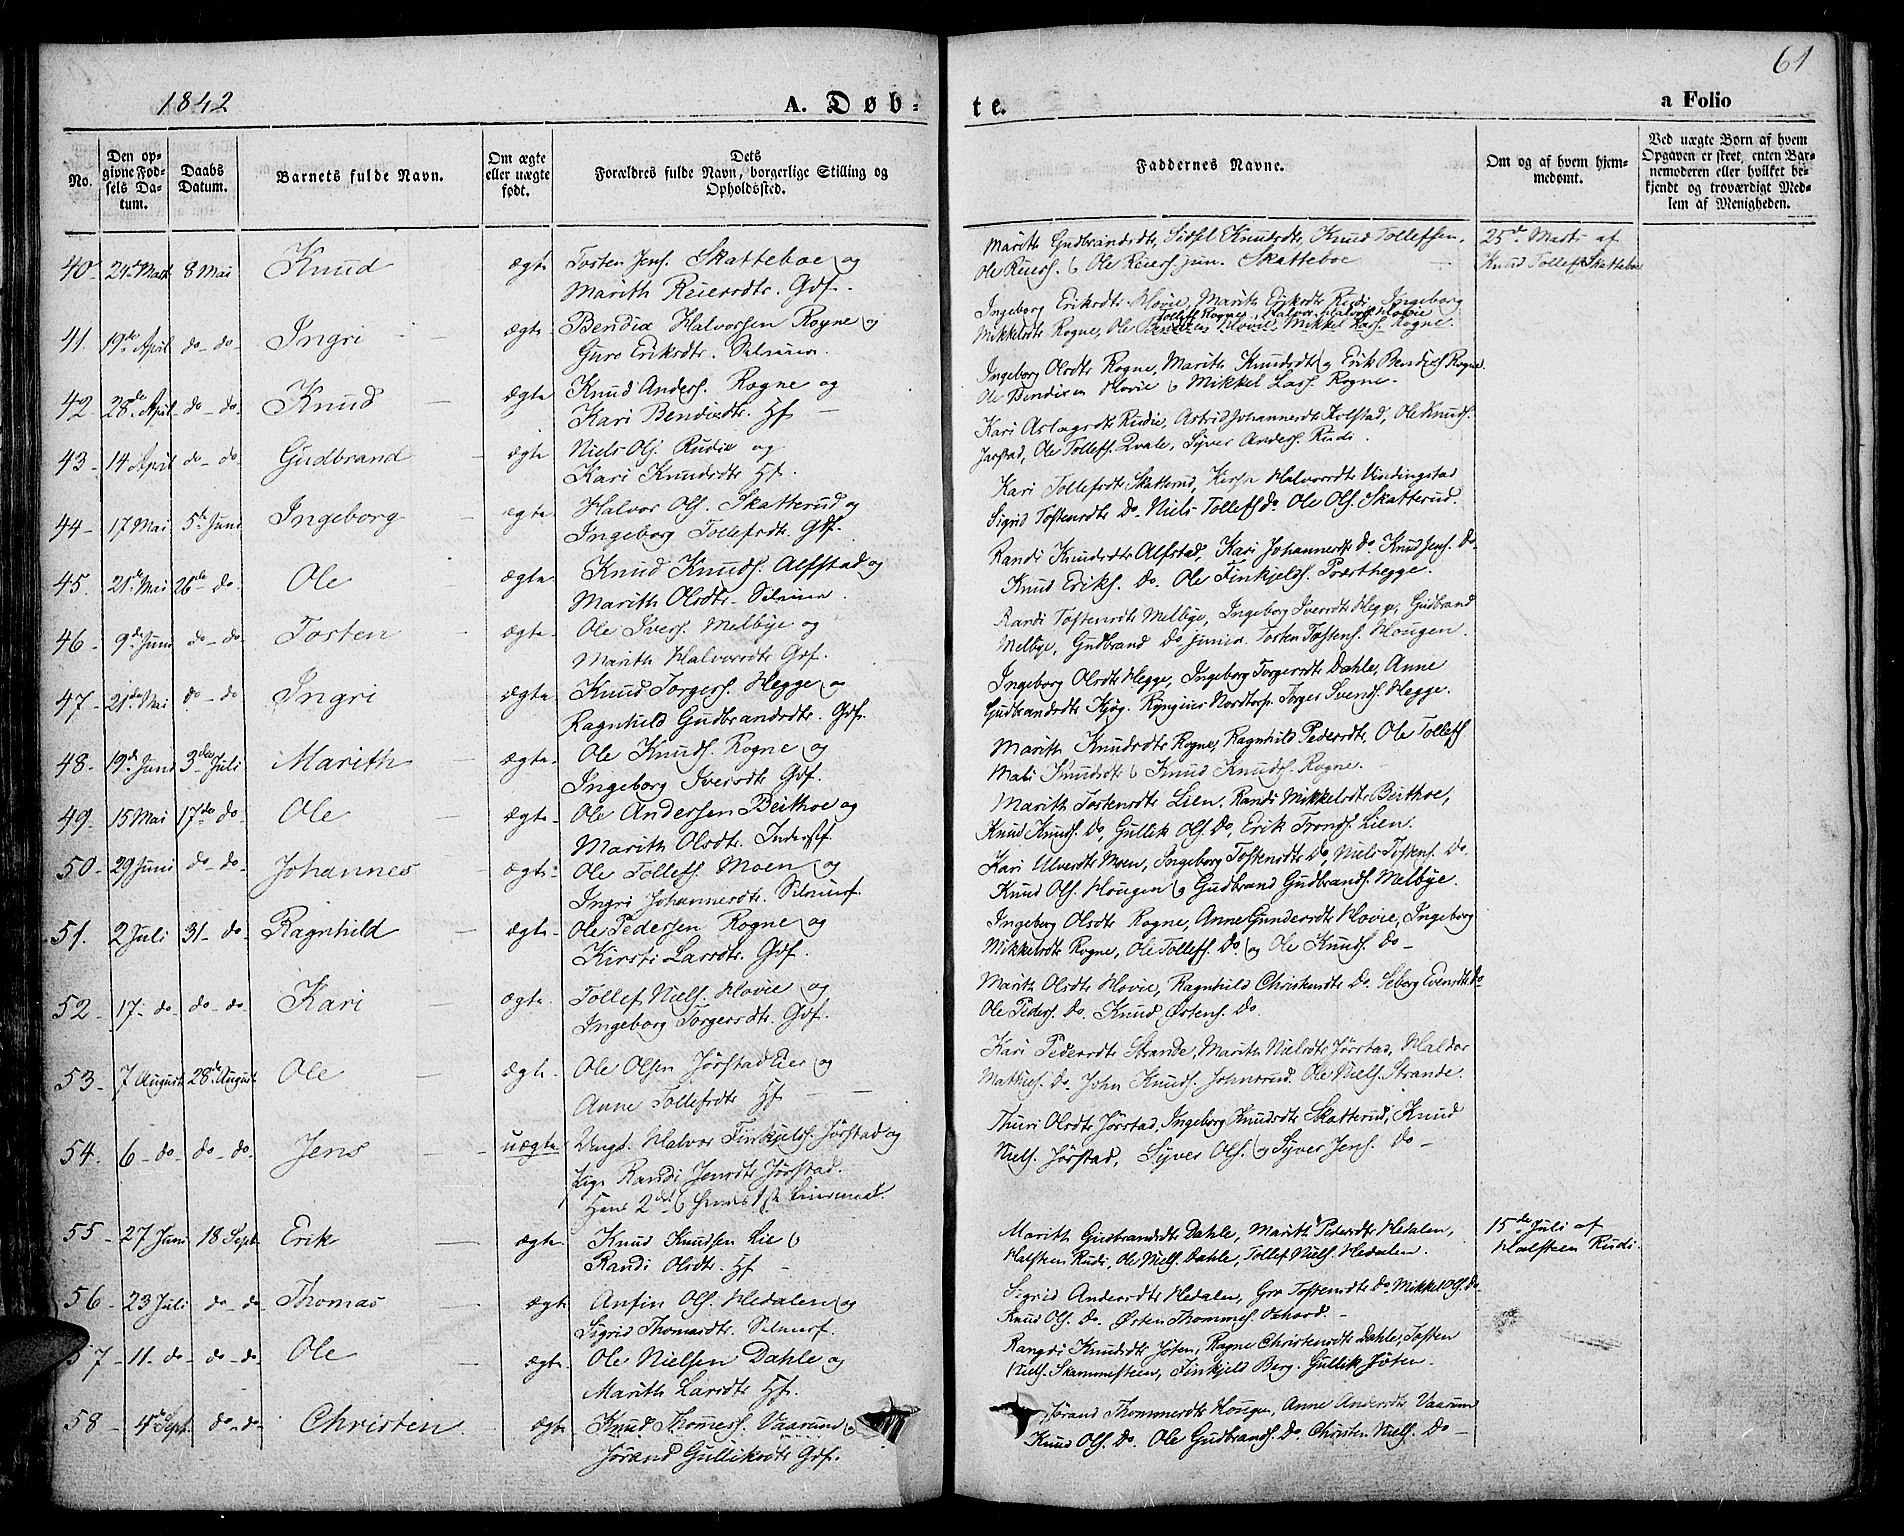 1842
A. Døb-
te.
a Folio
61
No.
Den op-
givne Fød-
sels Da-
tum.
Daabs
Datum.
Barnets fulde Navn.
Om ægte
eller uægte
født.
Dets
Forældres fulde Navn, borgerlige Stilling og
Opholdssted.
Faddernes Navne.
Om og af hvem hjem-
medømt.
Ved uægte Børn af hvem
Opgaven er skeet, enten Bar-
nemoderen eller hvilket be-
kjendt og troværdigt Med-
lem af Menigheden.
40 24de Marts 8 Mai Knud ægte Tosten Jens. Skatteboe og
Marith Reiersdtr. Gdf.
Marith Gudbrandsdtr, Sidsel Knudsdtr, Knud Tollefsen,
Ole Reiers. og Ole Reiers. jun. Skatteboe
25de Marts af
Knud Tollefs. Skatteboe
41. 19de April do do Ingri ægte Bendix Halvorsen Rogne og
Guro Eriksdtr.
Ingeborg Eriksdtr Hovie, Marith Eriksdtr Rudi, Ingeborg
Tollefs. Rogne, Halvor Halvors. Hovie
Mikkelsdtr Rogne, Ole Hovie, Mikkel Lars. Rogne.
42 28de April do do Knud ægte Knud Anders. Rogne og
Kari Bendixdtr. Hf
Ingeborg Olsdtr Rogne, Marith Knudsdtr og Erik Bendixs. Rogne
Ole Bendixen Hovie og Mikkel Lars. Rogne.
43 14 April do do Gudbrand ægte Niels Ols. Rudie og
Kari Knudsdtr Hf.
Kari Aslagsdtr Rudie, Astrid Johannesdtr Kolstad, Ole Knuds.
Jarstad, Ole Tollefs. Qvale, Syver Anders. Rudi.
44 17 Mai 5te Juni Ingeborg ægte Halvor Ols. Skatterud og
Ingeborg Tollefsdtr. Gdf.
Kari Tollefsdtr Skatterud, Halvorsdtr Vindingstad
Sigrid Tostensdtr Do. Niels Tollefs. Do Ole Ols. Skatterud.
45. 21de Mai 26de do Ole ægte Knud Knuds. Alfstad og
Marith Olsdtr.
Randi Knudsdtr Alfstad, Kari Johannesdtr Do. Knud Jens. Do.
Knud Eriks. Do. Ole Finkjelds. Præsthegge.
46 9de Juni do do Tosten ægte Ole Ivers. Melbye og
Marith Halvorsdtr Gdf.
Randi Tostensdtr Melbye, Ingeborg Iversdtr Hegge, Gudbrand
Melbye, Gudbrand Do junior Tosten Tostens. Hougen.
47 21de Mai do do Ingri ægte Knud Torgers. Hegge og
Ragnhild Gudbrandsdtr. Gdf.
Ingeborg Olsdtr Hegge, Ingeborg Torgersdtr Dahle, Anne
Gudbrandsdtr Kjøg. Nordtorp. Torger Svends. Hegge.
48 19de Juni 3die Juli Marith ægte Ole Knuds. Rogne og
Ingeborg Iversdtr Gdf.
Marith Knudsdtr Rogne, Ragnhild Pedersdtr, Ole Tollefs.
Mali Knudsdtr og Knud Knuds. Rogne.
49 15 Mai 17de do Ole ægte Ole Andersen Beithoe og
Marith Olsdtr. Inderstf.
Marith Tostensdtr Lien. Randi Mikkelsdtr Beithoe,
Knud Knuds. Do, Gullik Ols. Do, Erik Tronds. Lien.
50 29 Juni do do Johannes ægte Ole Tollefs. Moen og
Ingri Johannesdtr.
Kari Ulversdtr Moen, Ingeborg Tostensdtr Do, Niels Tostens. Do.
Knud Ols. Hougen og Gudbrand Gudbrands. Melbye.
51. 2 Juli 31 do Ragnhild ægte Ole Pedersen Rogne og
Kirsti Larsdtr. Gdf.
Ingeborg Olsdtr Rogne, Anne Gundersdtr Hovie, Ingeborg
Mikkelsdtr Rogne, Ole Tollefs. Do. og Ole Knuds. Do
52 17 do do do Kari ægte Tollef Niels. Hovie og
Ingeborg Torgersdtr. Gdf.
Marith Olsdtr Hovie, Ragnhild Christensdtr Do. Seborg Evensdtr Do
Ole Peders. Do. Knud Østens. Do.
53 7 August 28de August Ole ægte Ole Olsen Jørstad Eier og
Anne Tollefsdtr Hf
Kari Pedersdtr Strande, Marith Nielsdtr Jørstad, Haldor
Mathies. Do. John Knuds. Johnsrud. Ole Niels. Strande.
54. 6 do do do Jens uægte Ungk. Halvor Finkjelds. Jørstad og
Pige Randi Jensdtr Jørstad.
Hans 2det og hendes 1ste Leiermaal.
Thuri Olsdtr Jørstad, Ingeborg Knudsdtr Skatterud, Knud
Niels. Jørstad, Syver Ols. og Syver Jens. Do
55 27 Juni 18 Sept. Erik ægte Knud Knudsen Lie og
Randi Olsdtr. Hf
Marith Gudbrandsdtr Dahle, Marith Pedersdtr Hedalen,
Halsteen Rudi, Ole Niels. Dahle, Tollef Niels. Hedalen.
15de Juli af
Halsteen Rudi.
56 23 Juli do do Thomas ægte Anfin Ols. Hedalen og
Sigrid Thomasdtr.
Sigrid Andersdtr Hedalen, Gro Tostensdtr Do. Mikkel Ols. Do.
Knud Ols. Do. Østen Thommes.
57 11 do do do Ole ægte Ole Nielsen Dahle og
Marith Larsdtr Hf.
Rangdi Knudsdtr Joten, Ragne Christensdtr Dahle, Tosten
Niels. Skammesteen, Finkjeld Berg. Gullik Joten.
58 4de Sept. do do Christen ægte Knud Thomes. Vaarum og
Jørand Gulliksdtr Gdf.
Jørand Thommesdtr Hougen, Anne Andersdtr Vaarum
Knud Ols. Do. Ole Gudbrands. Do. Christen Niels. Do